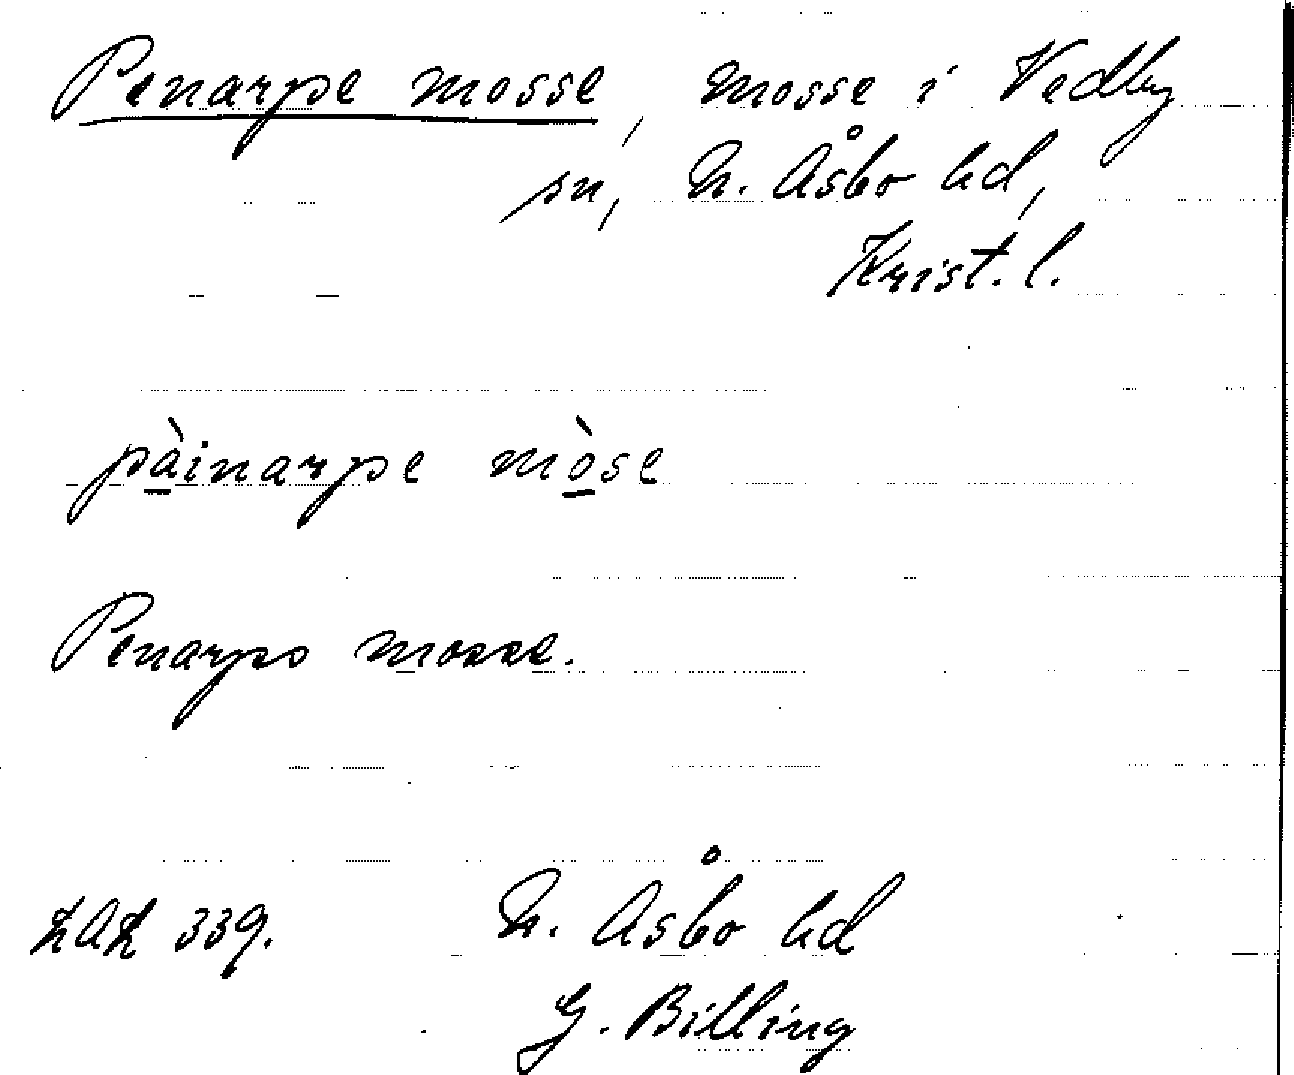 Penarpe mosse, mosse i Vedby
sn, N. Åsbo hd,
Krist. l.
pàinarpe mòse
Penarps mosse.
LAL 339. N. Åsbo hd
G. Billing